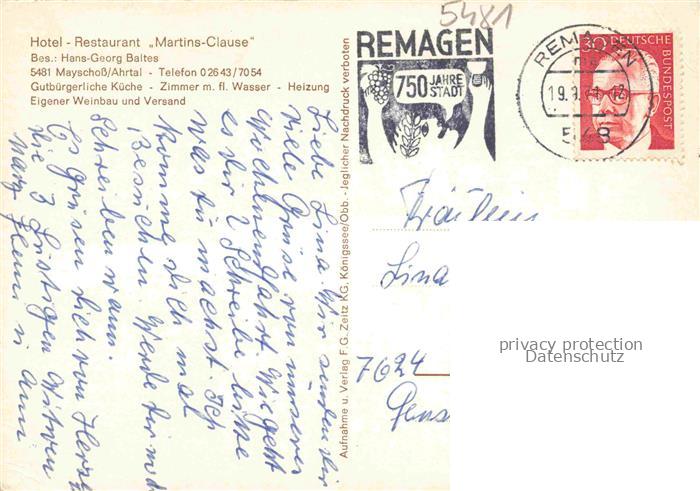 5481
Hotel - Restaurant „Martins-Clause"
Bes.: Hans-Georg Baltes
5481 Mayschoß/Ahrtal - Telefon 02643/7054
Gutbürgerliche Küche - Zimmer m. fl. Wasser - Heizung
Eigener Weinbau und Versand
REMAGEN
750 JAHRE
STADT
REMAGEN
548
30 DEUTSCHE
BUNDESPOST
Liebe Lina! Wir senden dir
viele Grüße von unserer
Wochenendfahrt. Wie geht
es dir? Schreibe bitte
was du machst. Ich
komme dich mal
besuchen. Werde dir
schreiben wann.
Es grüßen dich von Herzen
die 3 lustigen Witwen
Aufnahme u. Verlag F.G. Zeitz KG, Königssee/Obb. - Jeglicher Nachdruck verboten
Fräulein
Lina
7624
privacy protection
Datenschutz